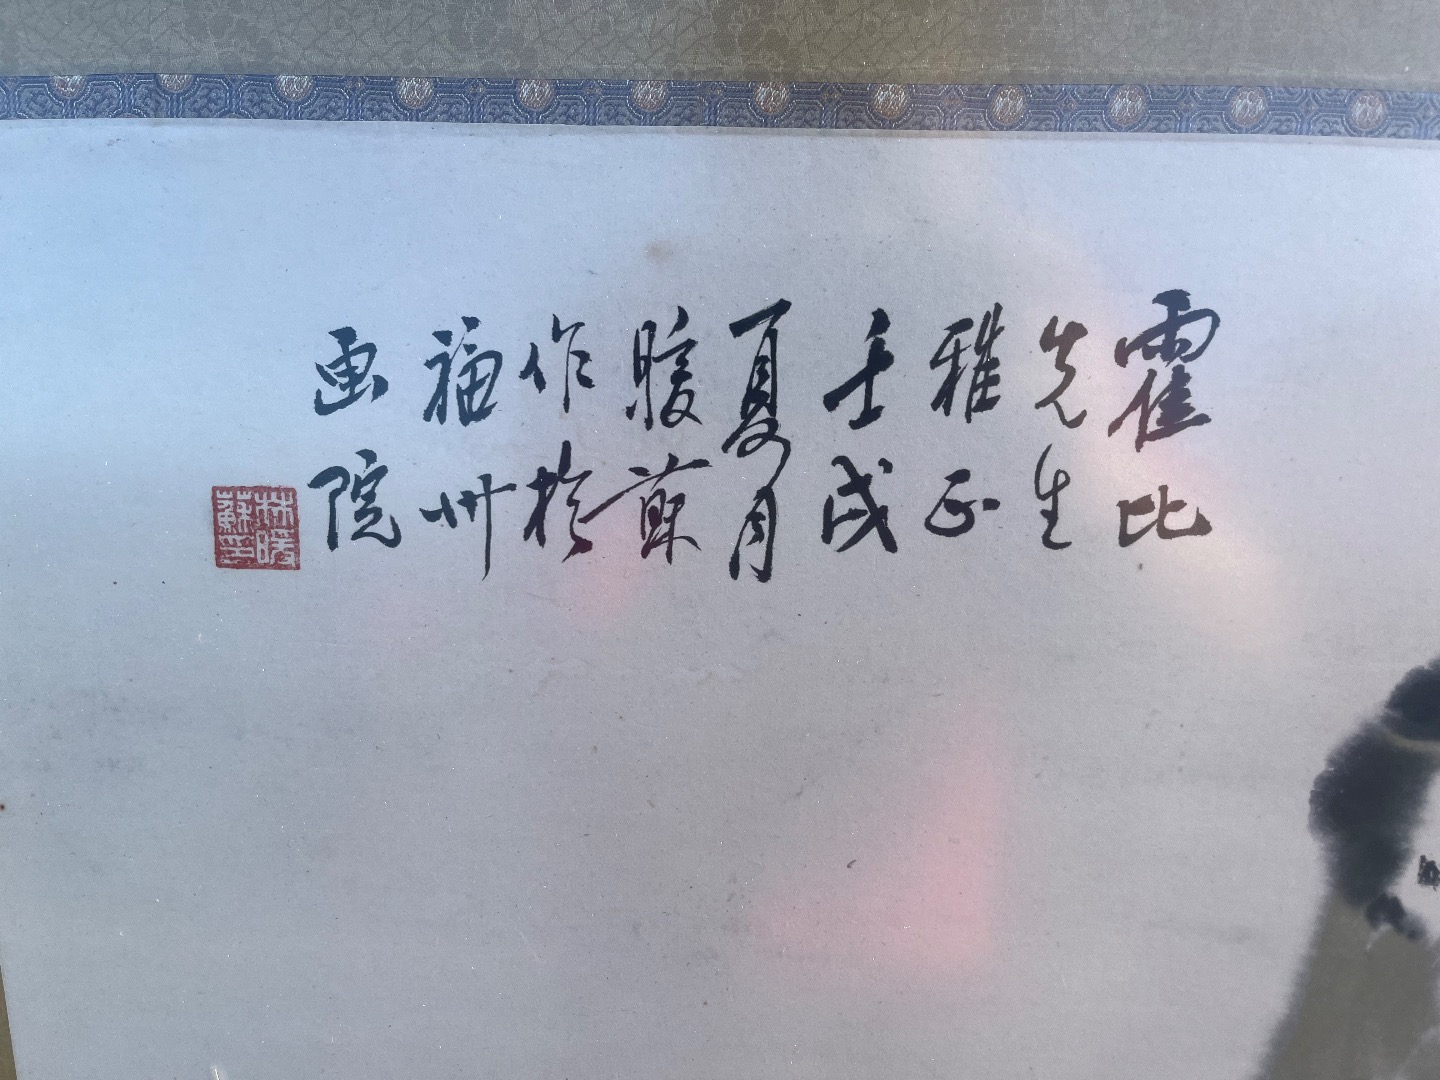 霍比
先生
雅正
壬戌
夏月
暖蘇
作於
福州
画院
林暖
蘇印